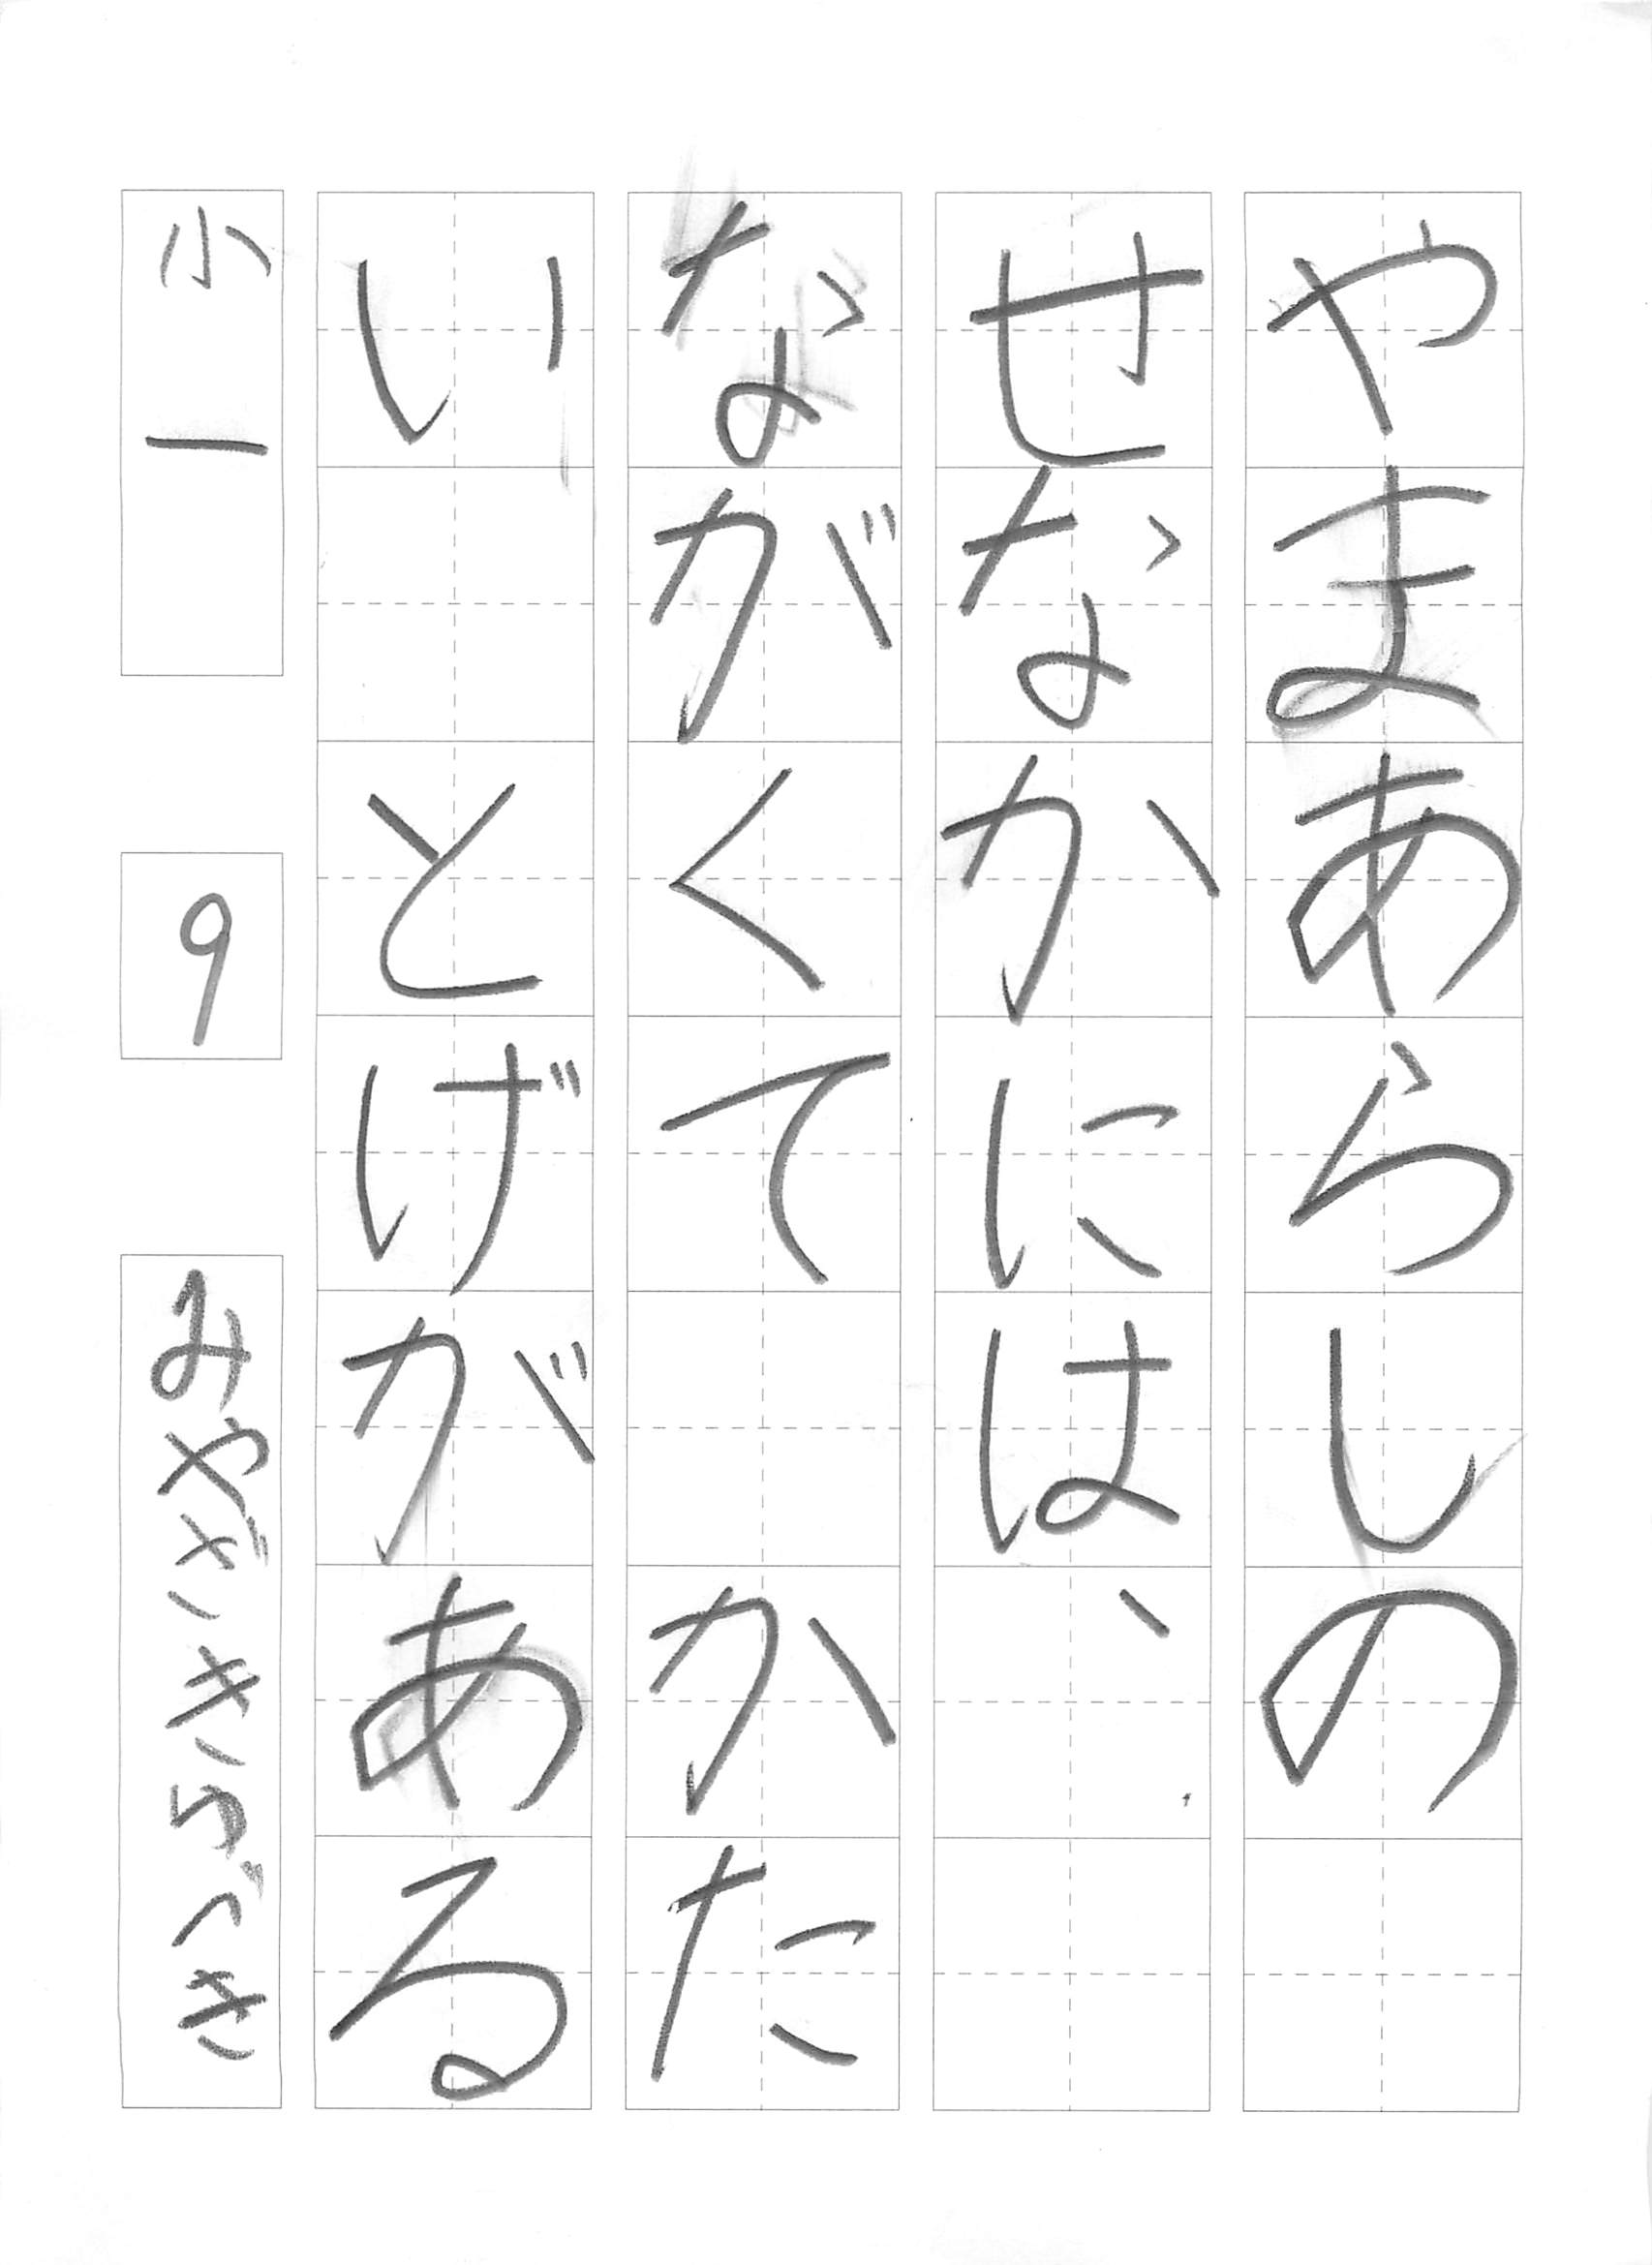 やまあらしの
せなかには、
ながくて　かた
い　とげがある
小一　9　みやざきゆづき